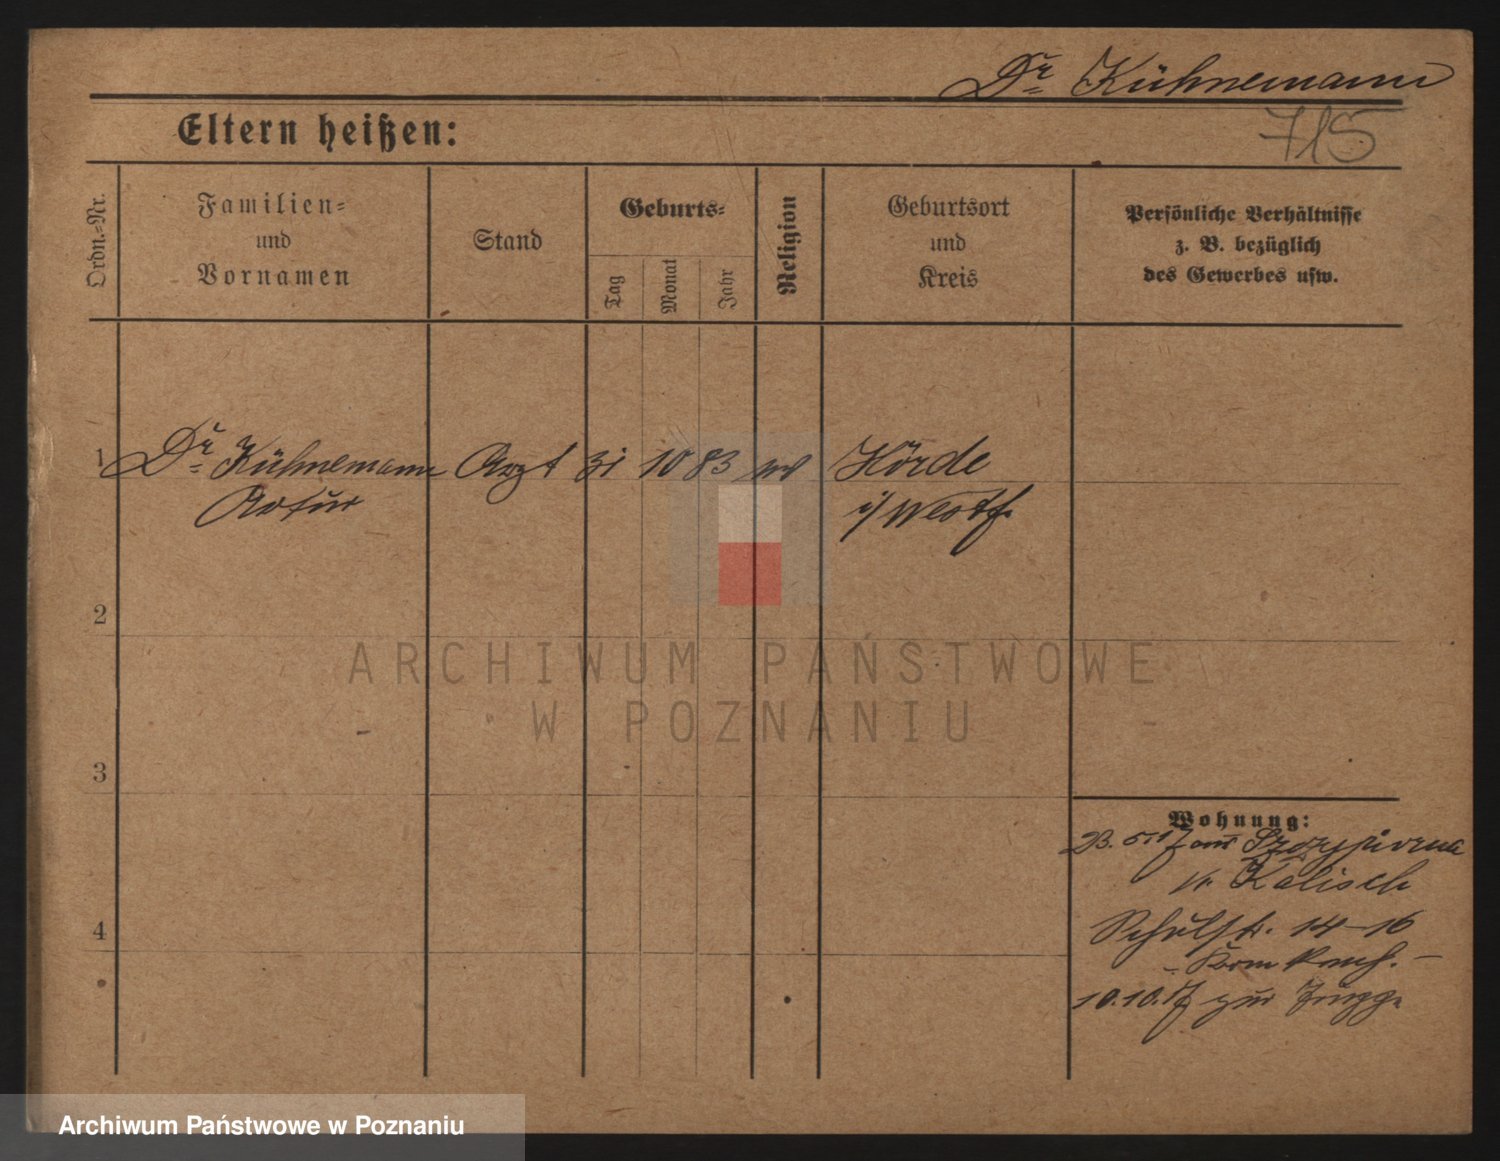 Dr Kühnemann
715
Eltern heißen:
Ordn.=Nr.
Familien=
und
Vornamen
Stand
Geburts=
Tag
Monat
Jahr
Religion
Geburtsort
und
Kreis
Persönliche Verhältnisse
z. B. bezüglich
des Gewerbes usw.
1 Dr Kühnemann Arzt 31 10 83 Hörde
Artur i/Westf.
2
3
4
Wohnung:
23. 5. 17 aus
Kalisch
Schulstr. 14-16
10.10.17 zur
ARCHIWUM PAŃSTWOWE
W POZNANIU
Archiwum Państwowe w Poznaniu